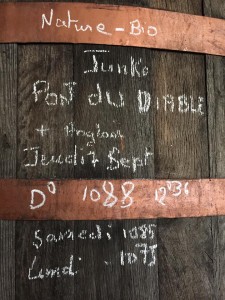 Nature-Bio
Junko
PONT DU DIABLE
Jeudi 7 Sept
D° 1088
Samedi 1085
Lundi - 1075